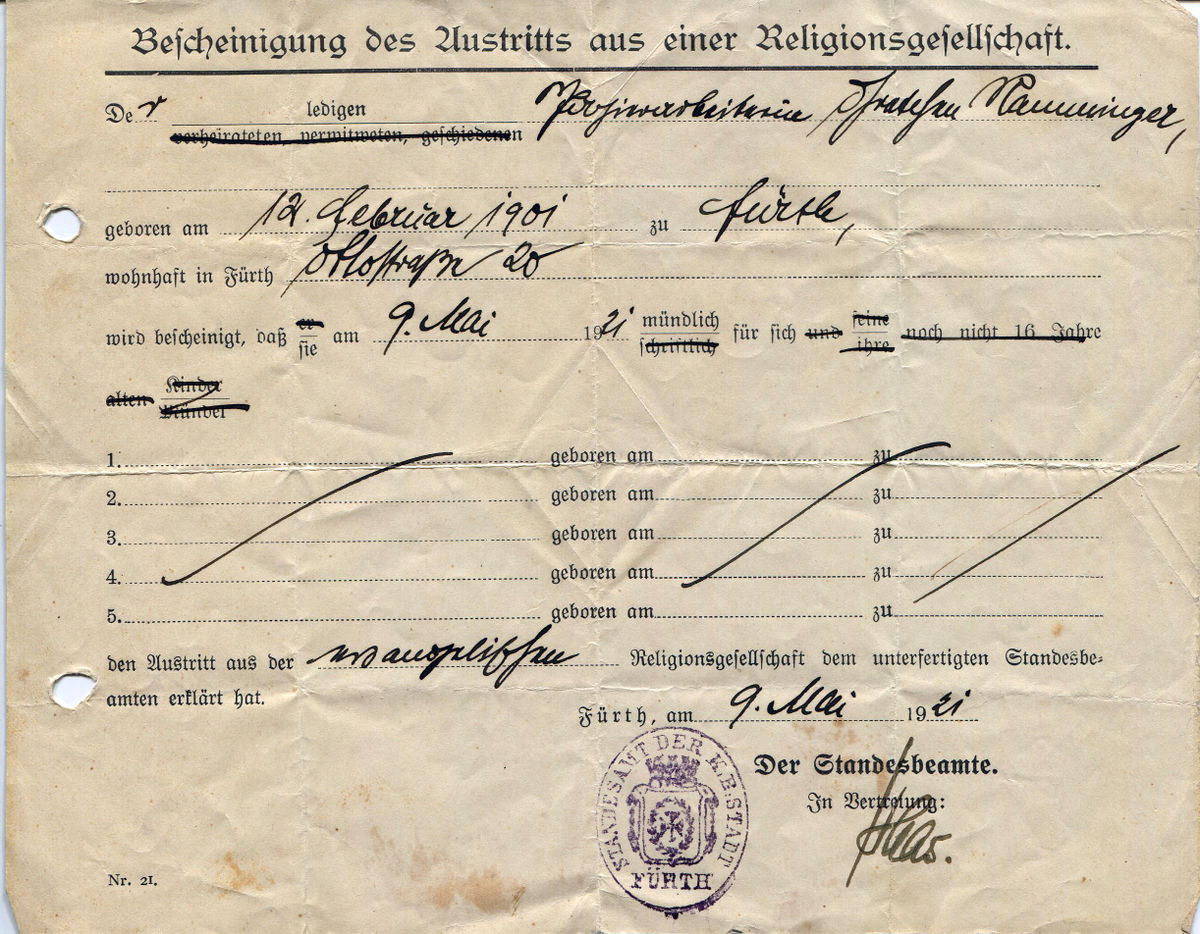 Bescheinigung des Austritts aus einer Religionsgesellschaft.
Der ledigen Gretchen Namminger,
verheirateten, verwitweten, geschiedenen
geboren am 12. Februar 1901 zu Fürth,
wohnhaft in Fürth Ottostraße 20
wird bescheinigt, daß er sie am 9. Mai 1921 mündlich schriftlich für sich und seine ihre noch nicht 16 Jahre
alten Kinder Mündel
1. geboren am zu
2. geboren am zu
3. geboren am zu
4. geboren am zu
5. geboren am zu
den Austritt aus der evangelischen Religionsgesellschaft dem unterfertigten Standesbe-
amten erklärt hat.
Fürth, am 9. Mai 1921
Der Standesbeamte.
In Vertretung:
STANDESAMT DER K.B. STADT
FÜRTH
Nr. 21.